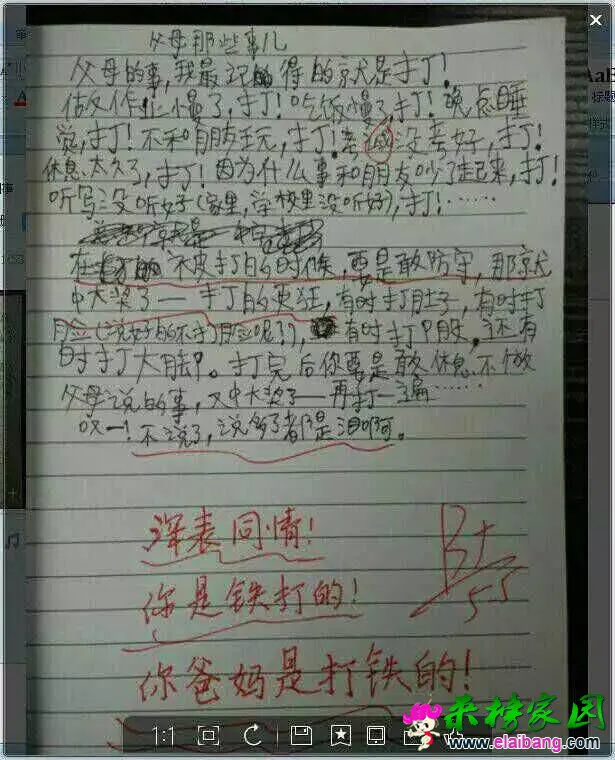 父母那些事儿
父母的事,我最记得的就是打!
做作业慢了,打!吃饭慢了,打!晚点睡
觉,打!不和朋友玩,打!考没考好,打!
休息太久了,打!因为什么事和朋友吵了起来,打!
听写没听好(家里,学校里没听好),打!……
在被打的时候,要是敢防守,那就
中大奖了——打的更狂,有时打肚子,有时打
脸(说好的不打脸呢?),有时打腿,还有
时打大脚。打完后你要是敢休息不做
父母说的事,又中大奖了——再打一遍……
哎!不说了,说多了都是泪啊。
深表同情!
B+
55
你是铁打的!
你爸妈是打铁的!
1:1
www.elaibang.com